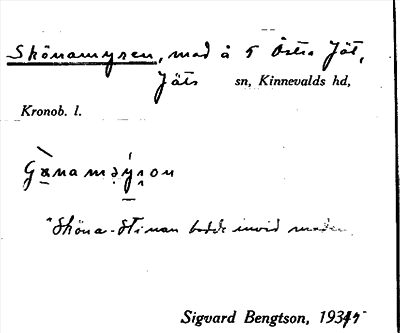 Skönamyren, mad å 5 Östra Jät,
Jäts sn, Kinnevalds hd,
Kronob. l.
"Sköna-Stinan bodde invid maden.
Sigvard Bengtson, 193